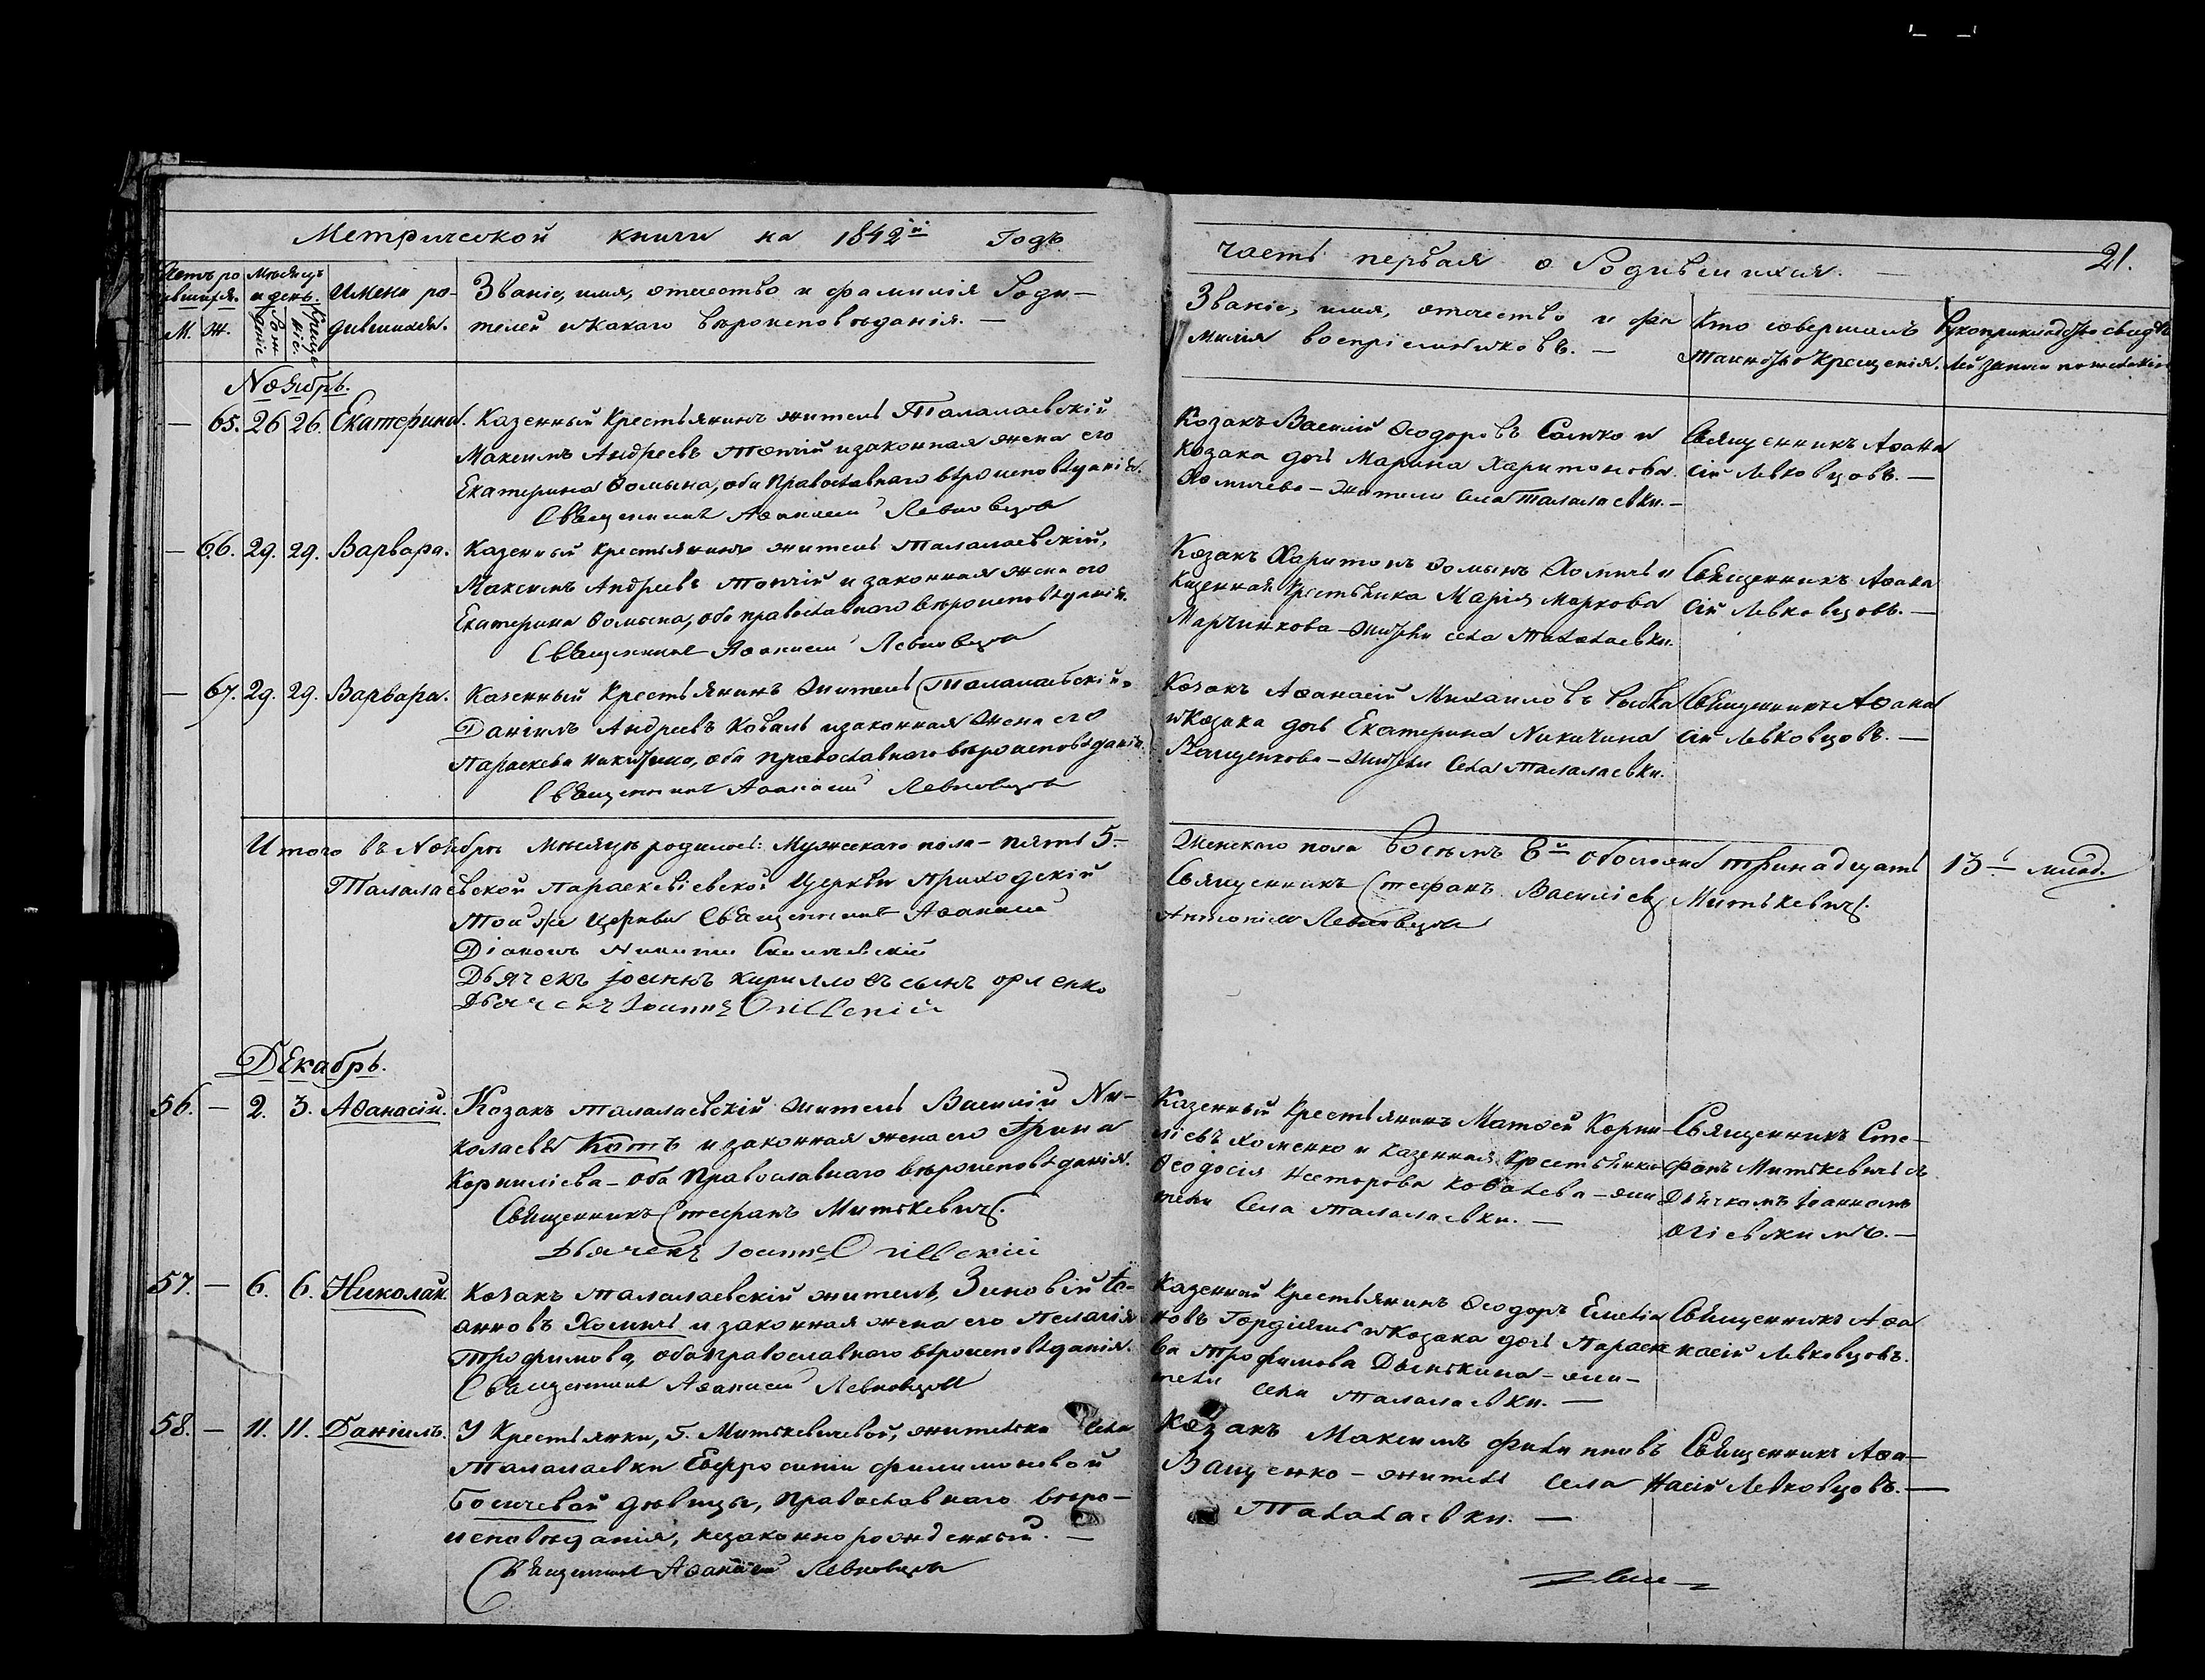 Метрической книги на 1842й Годъ
часть первая о Родившихся. — 21.
М. Ж.
Имена ро-
дившихся.
Званіе, имя, отечество и фамилія Роди-
телей и какого вѣроисповѣданія. —
Званіе, имя, отечество и фа
милія воспріемниковъ. —
Кто совершалъ
таинство крещенія.
Ноябрь.
— 65. 26 26. Екатерина.
Казенный крестьянинъ житель Талалаевскій
Максимъ Андреевъ и законная жена его
Екатерина Ѳомина, оба православнаго вѣроисповѣданія.
Священникъ Аѳанасій Левковцовъ
Козакъ Василій Ѳеодоровъ и
козака дочь Марина Харитонова
Хомичева — жители села Талалаевки. —
Священникъ Аѳана
сій Левковцовъ. —
— 66. 29. 29. Варвара.
Казенный крестьянинъ житель Талалаевскій,
Максимъ Андреевъ и законная жена его
Екатерина Ѳомина, оба православнаго вѣроисповѣданія.
Священникъ Аѳанасій Левковцовъ
Козакъ Харитонъ Ѳоминъ Хомичь и
казенная крестьянка Марія Маркова
Марчинкова — жители села Талалаевки.
Священникъ Аѳана
сій Левковцовъ. —
— 67. 29. 29. Варвара.
Казенный крестьянинъ житель Талалаевскій,
Даніилъ Андреевъ Коваль и законная жена его
Параскева Никитина, оба православнаго вѣроисповѣданія.
Священникъ Аѳанасій Левковцовъ
Козакъ Аѳанасій Михаиловъ
и козака дочь Екатерина Никитина
Ващенкова — жители села Талалаевки.
Священникъ Аѳана
сій Левковцовъ. —
Итого въ Ноябрѣ мѣсяцѣ родилось: Мужескаго пола — пять 5 —
Женскаго пола восемь 8й обоего тринадцать 13ь
Талалаевской Параскевіевской Церкви приходскій
Священникъ Стефанъ Василіевъ Митькевичъ.
Той же Церкви Священникъ Аѳанасій
Левковцовъ
Діаконъ Никита
Дьячекъ Іоаннъ Кирилловъ сынъ Орленко
Дьячекъ Іоаннъ Огіевскій
Декабрь.
56. — 2. 3. Аѳанасій.
Козакъ Талалаевскій житель Василій Ни-
колаевъ Котъ и законная жена его Ирина
Корниліева — оба православнаго вѣроисповѣданія.
Священникъ Стефанъ Митькевичъ.
Дьячекъ Іоаннъ Огіевскій
Казенный крестьянинъ Матѳей Корни-
ліевъ Хоменко и казенная крестьянка
Ѳеодосія Несторова Ковалева — жи
тели села Талалаевки. —
Священникъ Сте-
фанъ Митькевичь съ
Дьячкомъ Іоанномъ
Огіевскимъ. —
57. — 6. 6. Николай.
Козакъ Талалаевскій житель, Зиновій Іо-
анновъ Хомичь и законная жена его Пелагія
Трофимова, оба православнаго вѣроисповѣданія.
Священникъ Аѳанасій Левковцовъ
Казенный крестьянинъ Ѳеодоръ Емелія
новъ и козака дочь Параске
ва Трофимова — жи-
тели села Талалаевки. —
Священникъ Аѳа
насій Левковцовъ.
58. — 11. 11. Даніилъ.
У крестьянки, Г. Митькевичевой, жительки села
Талалаевки Евфросиніи Филимоновой
дѣвицы, православнаго вѣро-
исповѣданія, незаконнорожденный. —
Священникъ Аѳанасій Левковцовъ
Козакъ Максимъ Филиповъ
Ващенко — житель села
Талалаевки. —
Священникъ Аѳа-
насій Левковцовъ. —